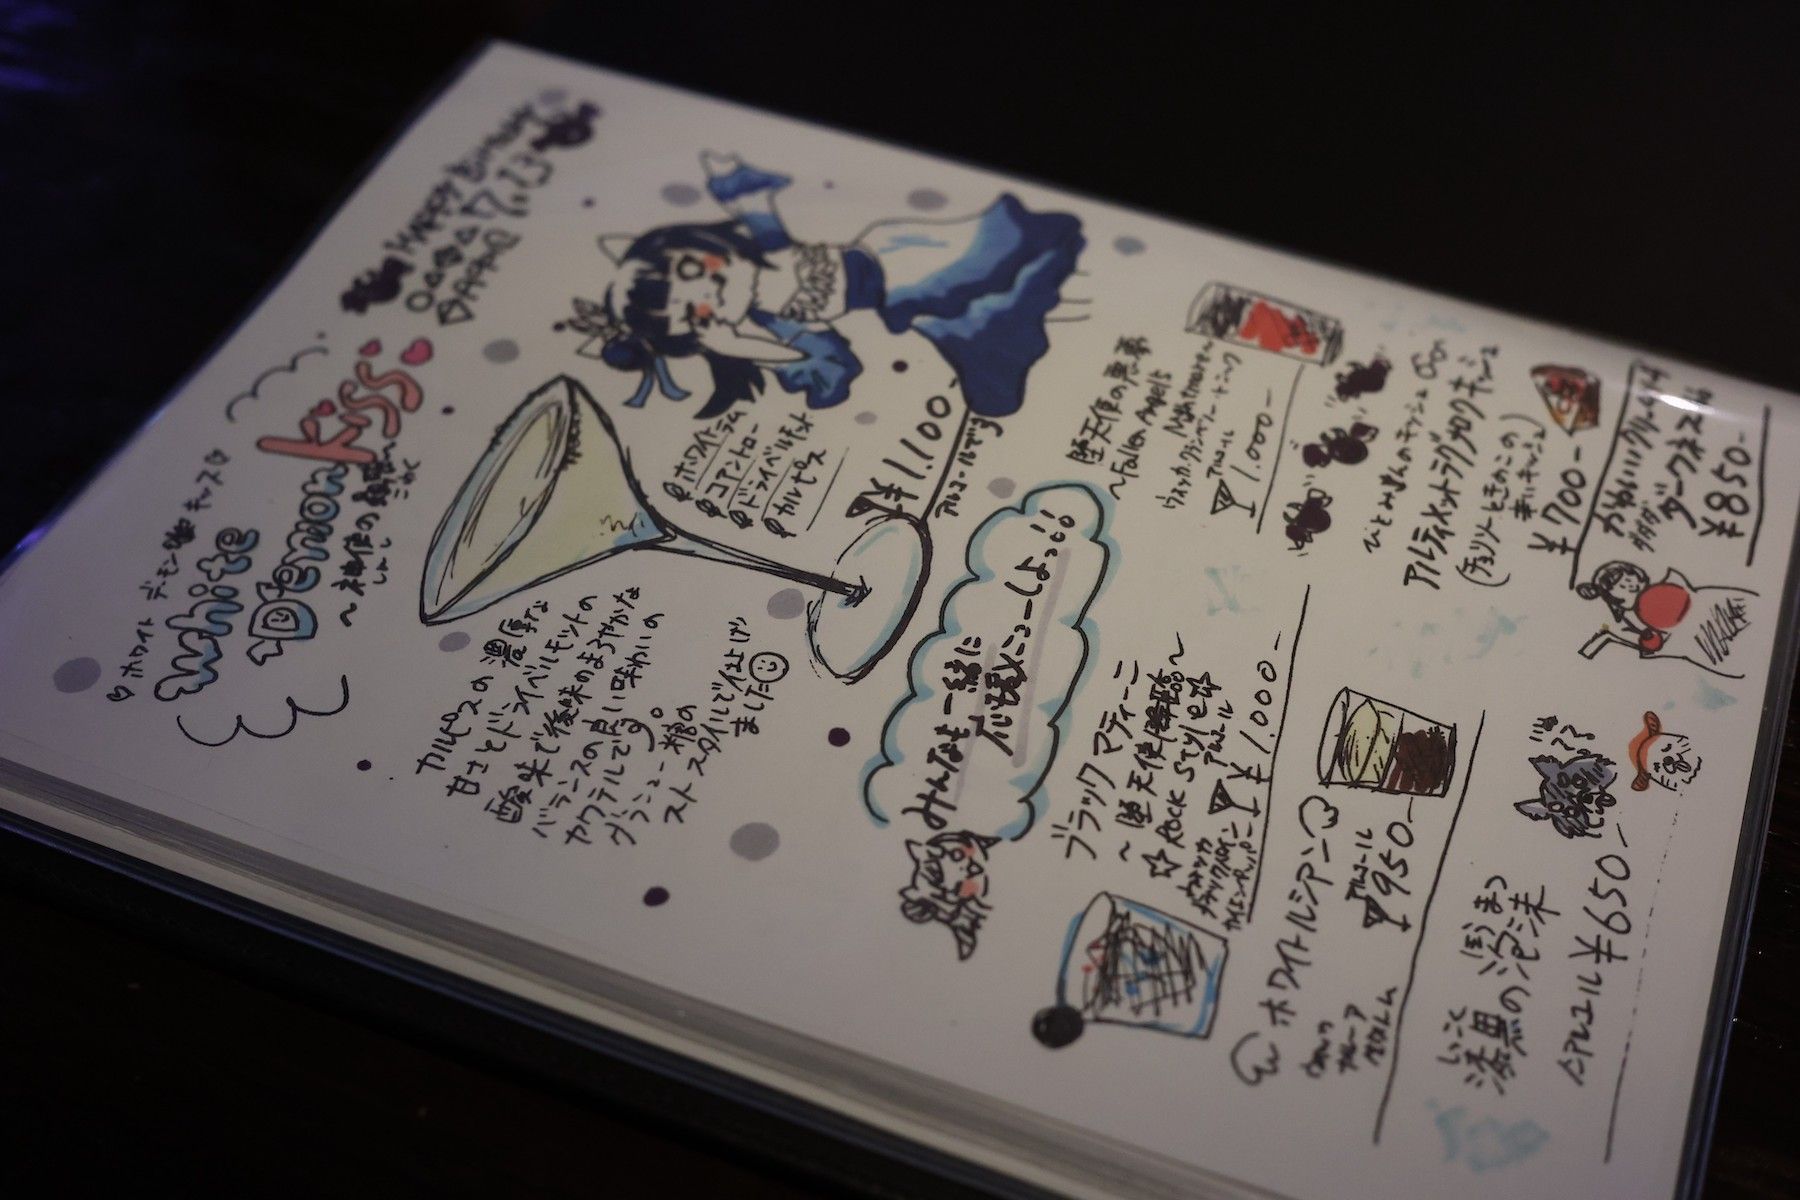 HAPPY BirthDAY
7.13
♡ホワイト デーモン キッス♡
White
Demon Kiss
〜神使の
しんし
ホワイトラム
コアントロー
ドライベルモット
カルピス
¥1.100-
アルコールです
カルピスの濃厚な
甘さとドライベルモットの
酸味で後味のまろやかな
バランスの良い味わいの
カクテルです。
グラニュー糖の
スノースタイルで仕上げ
ました
みんなも一緒に
応援メニューしよっ!!
堕天使の悪夢
〜Fallen Angels
Nightmare〜
ウォッカ・クランベリー・トニック
アルコール
¥1.000-
ブラックマティーニ
〜堕天使降臨〜
☆Rock Style☆
アルコール
¥1.000-
ウォッカ
ひとみさんのキッシュ
アルティメットラグナロクキッシュ
(チョリソーときのこの
辛いキッシュ)
¥700-
かわいいクリームソーダ
ダークネス
¥850-
ホワイトルシアン
アルコール
¥950-
ウォッカ
カルーア
ミルク
しっこく
ほうまつ
漆黒の泡沫
ノンアルコール ¥650-